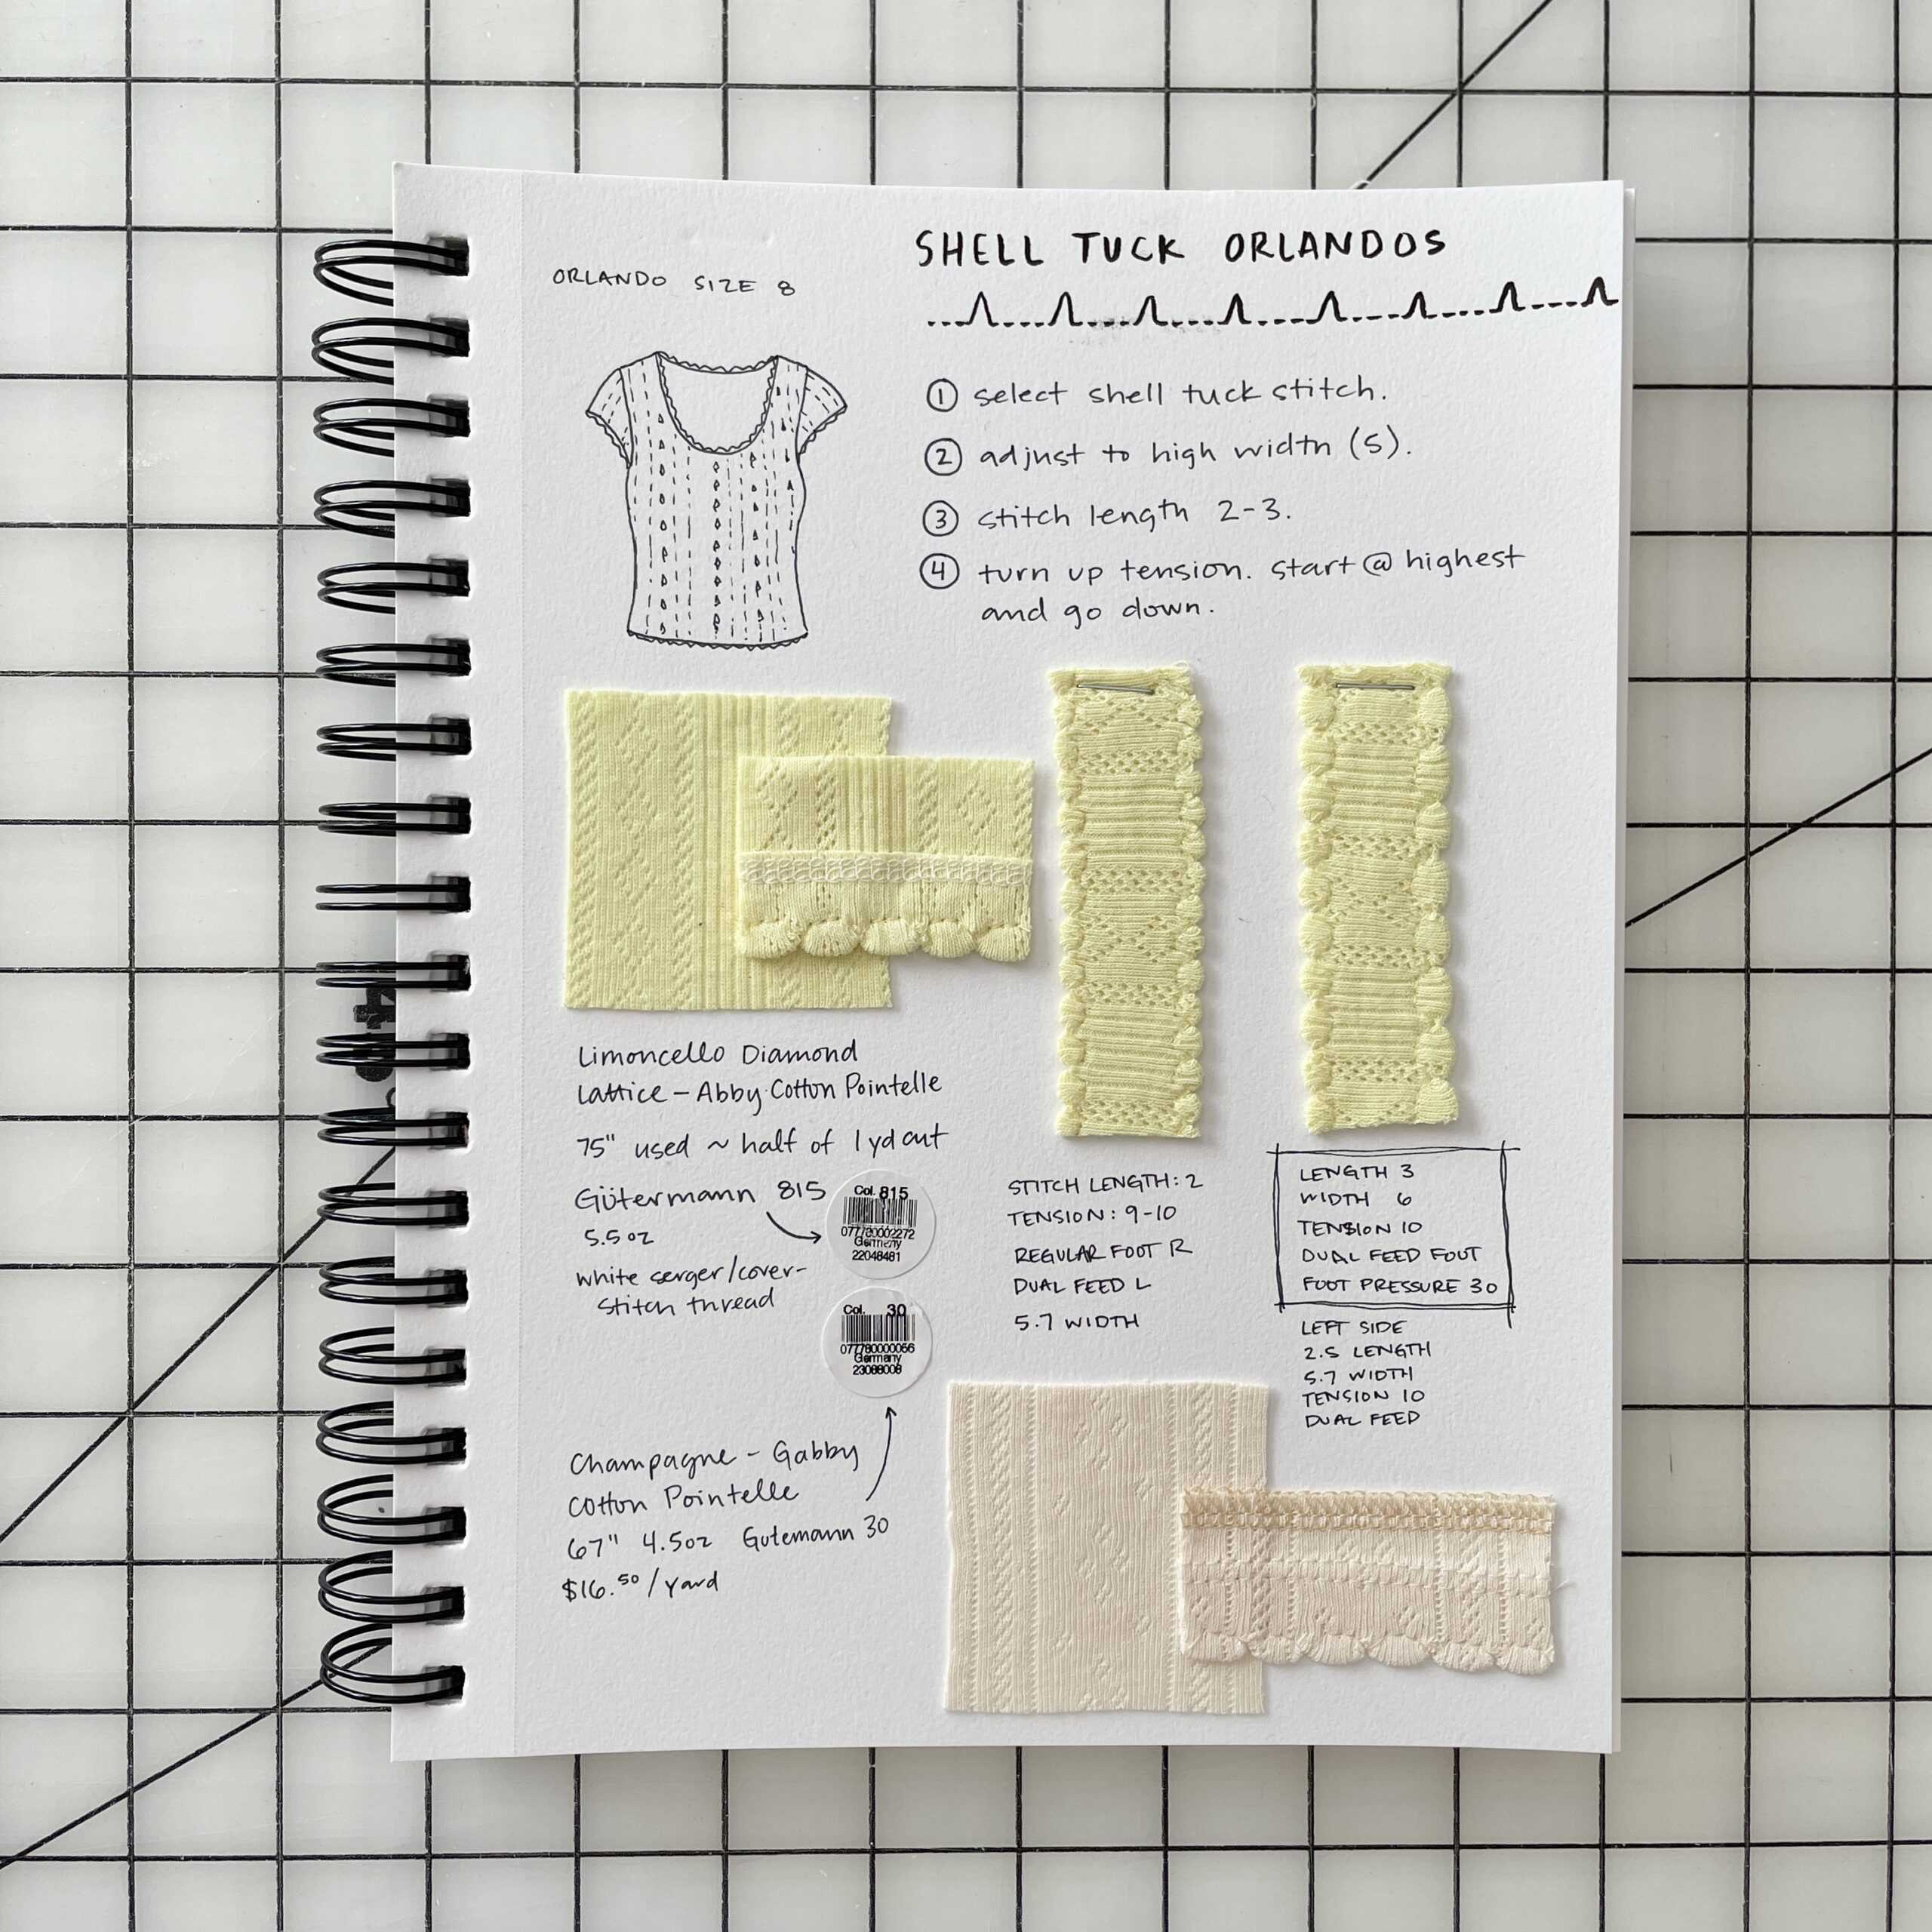 ORLANDO SIZE 8
SHELL TUCK ORLANDOS
① select shell tuck stitch.
② adjust to high width (5).
③ stitch length 2-3.
④ turn up tension. start @ highest
and go down.
Limoncello Diamond
Lattice - Abby Cotton Pointelle
75" used ~ half of 1 yd cut
Gütermann 815
5.5 oz
white serger/cover-
stitch thread
Col. 815
077780002272
Germany
22048481
Col. 30
077780000056
Germany
23088008
Champagne - Gabby
Cotton Pointelle
67" 4.5oz Gutemann 30
$16.50/yard
STITCH LENGTH: 2
TENSION: 9-10
REGULAR FOOT R
DUAL FEED L
5.7 WIDTH
LENGTH 3
WIDTH 6
TENSION 10
DUAL FEED FOOT
FOOT PRESSURE 30
LEFT SIDE
2.5 LENGTH
5.7 WIDTH
TENSION 10
DUAL FEED